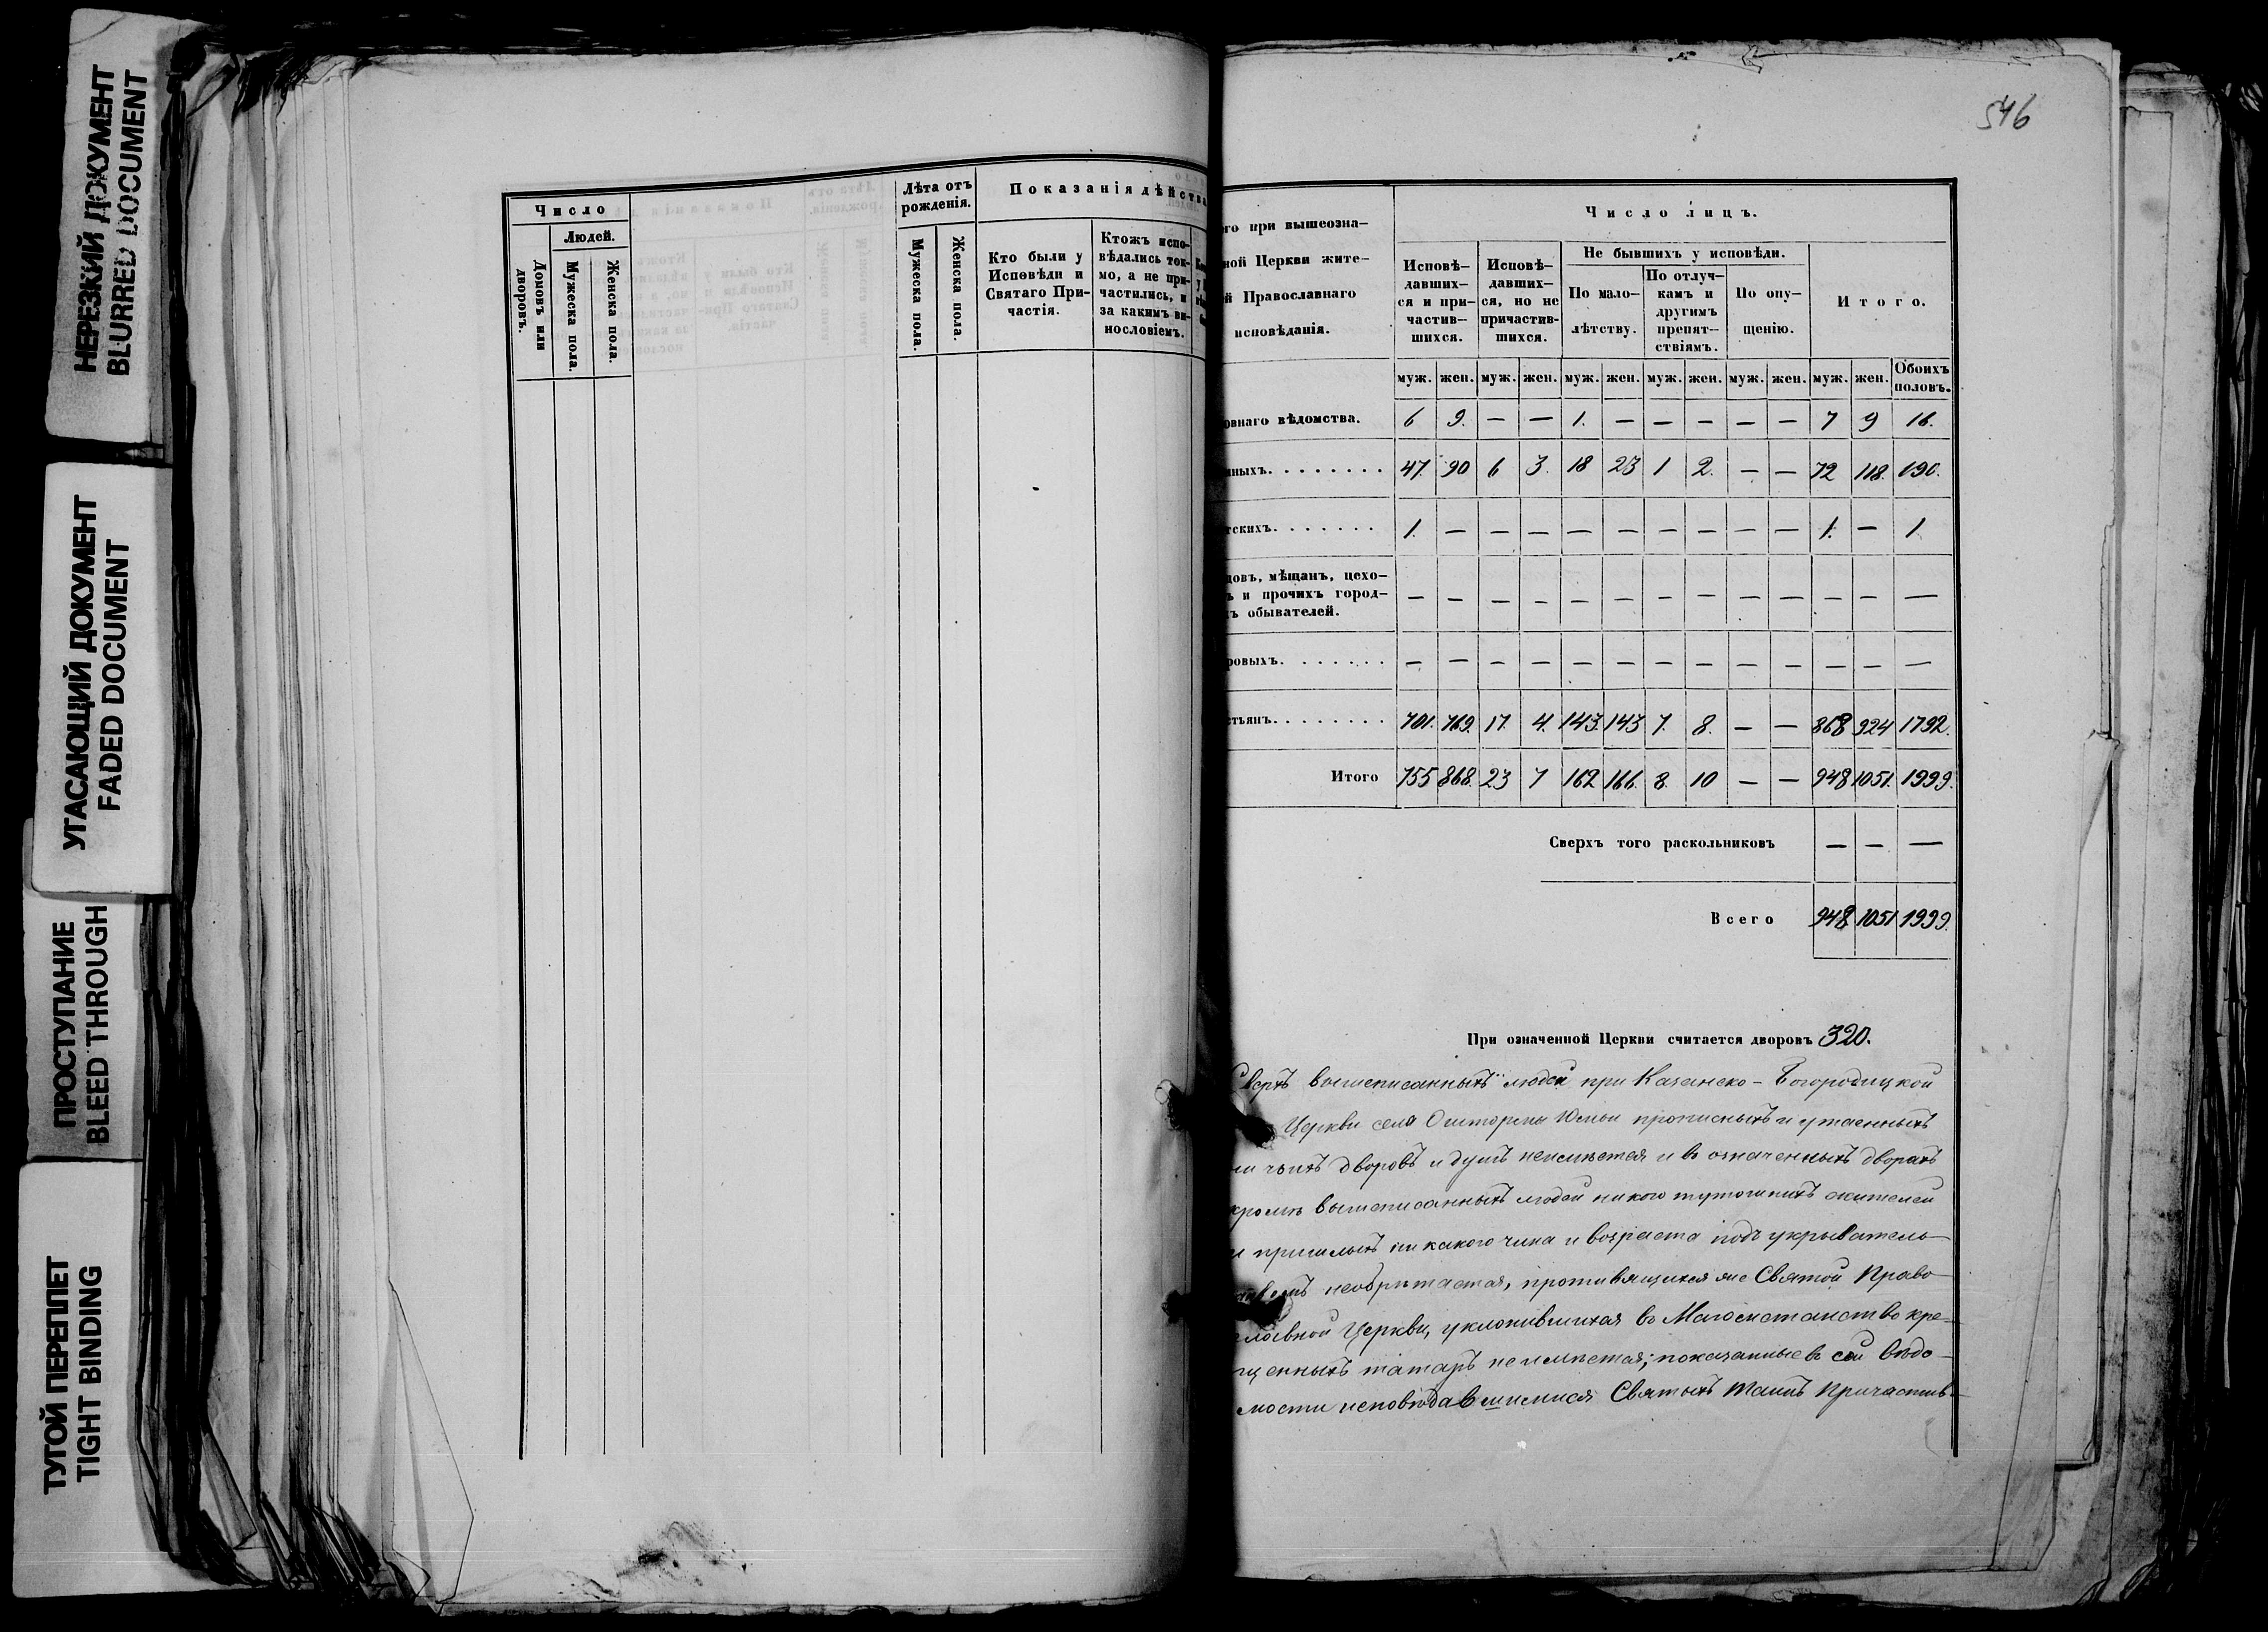 НЕРЕЗКИЙ ДОКУМЕНТ
BLURRED DOCUMENT
УГАСАЮЩИЙ ДОКУМЕНТ
FADED DOCUMENT
ПРОСТУПАНИЕ
BLEED THROUGH
ТУГОЙ ПЕРЕПЛЕТ
TIGHT BINDING
Число
Людей.
Домовъ или дворовъ.
Мужеска пола.
Женска пола.
Лѣта отъ рожденія.
Мужеска пола.
Женска пола.
Показанія дѣйства
Кто были у
Исповѣди и
Святаго При-
частія.
Ктожъ испо-
вѣдались ток-
мо, а не при-
частились, и
за какимъ ви-
нословіемъ.
546
го при вышеозна-
ной Церкви жите-
й Православнаго
исповѣданія.
Число лицъ.
Исповѣ-
давших-
ся и при-
частив-
шихся.
Исповѣ-
давших-
ся, но не
причастив-
шихся.
Не бывшихъ у исповѣди.
По мало-
лѣтству.
По отлуч-
камъ и
другимъ
препят-
ствіямъ.
По опу-
щенію.
Итого.
муж. жен. муж. жен. муж. жен. муж. жен. муж. жен. муж. жен. Обоихъ половъ.
овнаго вѣдомства. 6 9. — — 1. — — — — — 7 9 16.
нныхъ. . . . . . . . 47. 90 6 3. 18 23 1 2. — — 72 118. 190.
тскихъ. . . . . . . 1. — — — — — — — — — 1. — 1
цовъ, мѣщанъ, цехо-
ъ и прочихъ город-
хъ обывателей. — — — — — — — — — — — — —
ровыхъ. . . . . . . — — — — — — — — — — — — —
стьянъ. . . . . . . . 701. 769. 17. 4. 143. 143 7. 8. — — 868 924 1792.
Итого 755 868. 23 7 162 166. 8. 10 — — 948 1051. 1999.
Сверхъ того раскольниковъ — — —
Всего 948 1051 1999.
При означенной Церкви считается дворовъ 320.
Сверхъ вышеписанныхъ людей при Казанско-Богородицкой
Церкви села Ошторма Юмьи прописныхъ и утаенныхъ
ни чьихъ дворовъ и душъ неимѣется и въ означенныхъ дворахъ
кромѣ вышеписанныхъ людей никого тутошнихъ жителей
и пришлыхъ никакого чина и возраста подъ укрыватель-
необрѣтается, противящихся же Святой Право-
славной Церкви, уклонившихся въ Магометанство кре-
щенныхъ татаръ неимѣется; показанные въ сей вѣдо-
мости исповѣдавшимися Святыхъ Таинъ Причастив-